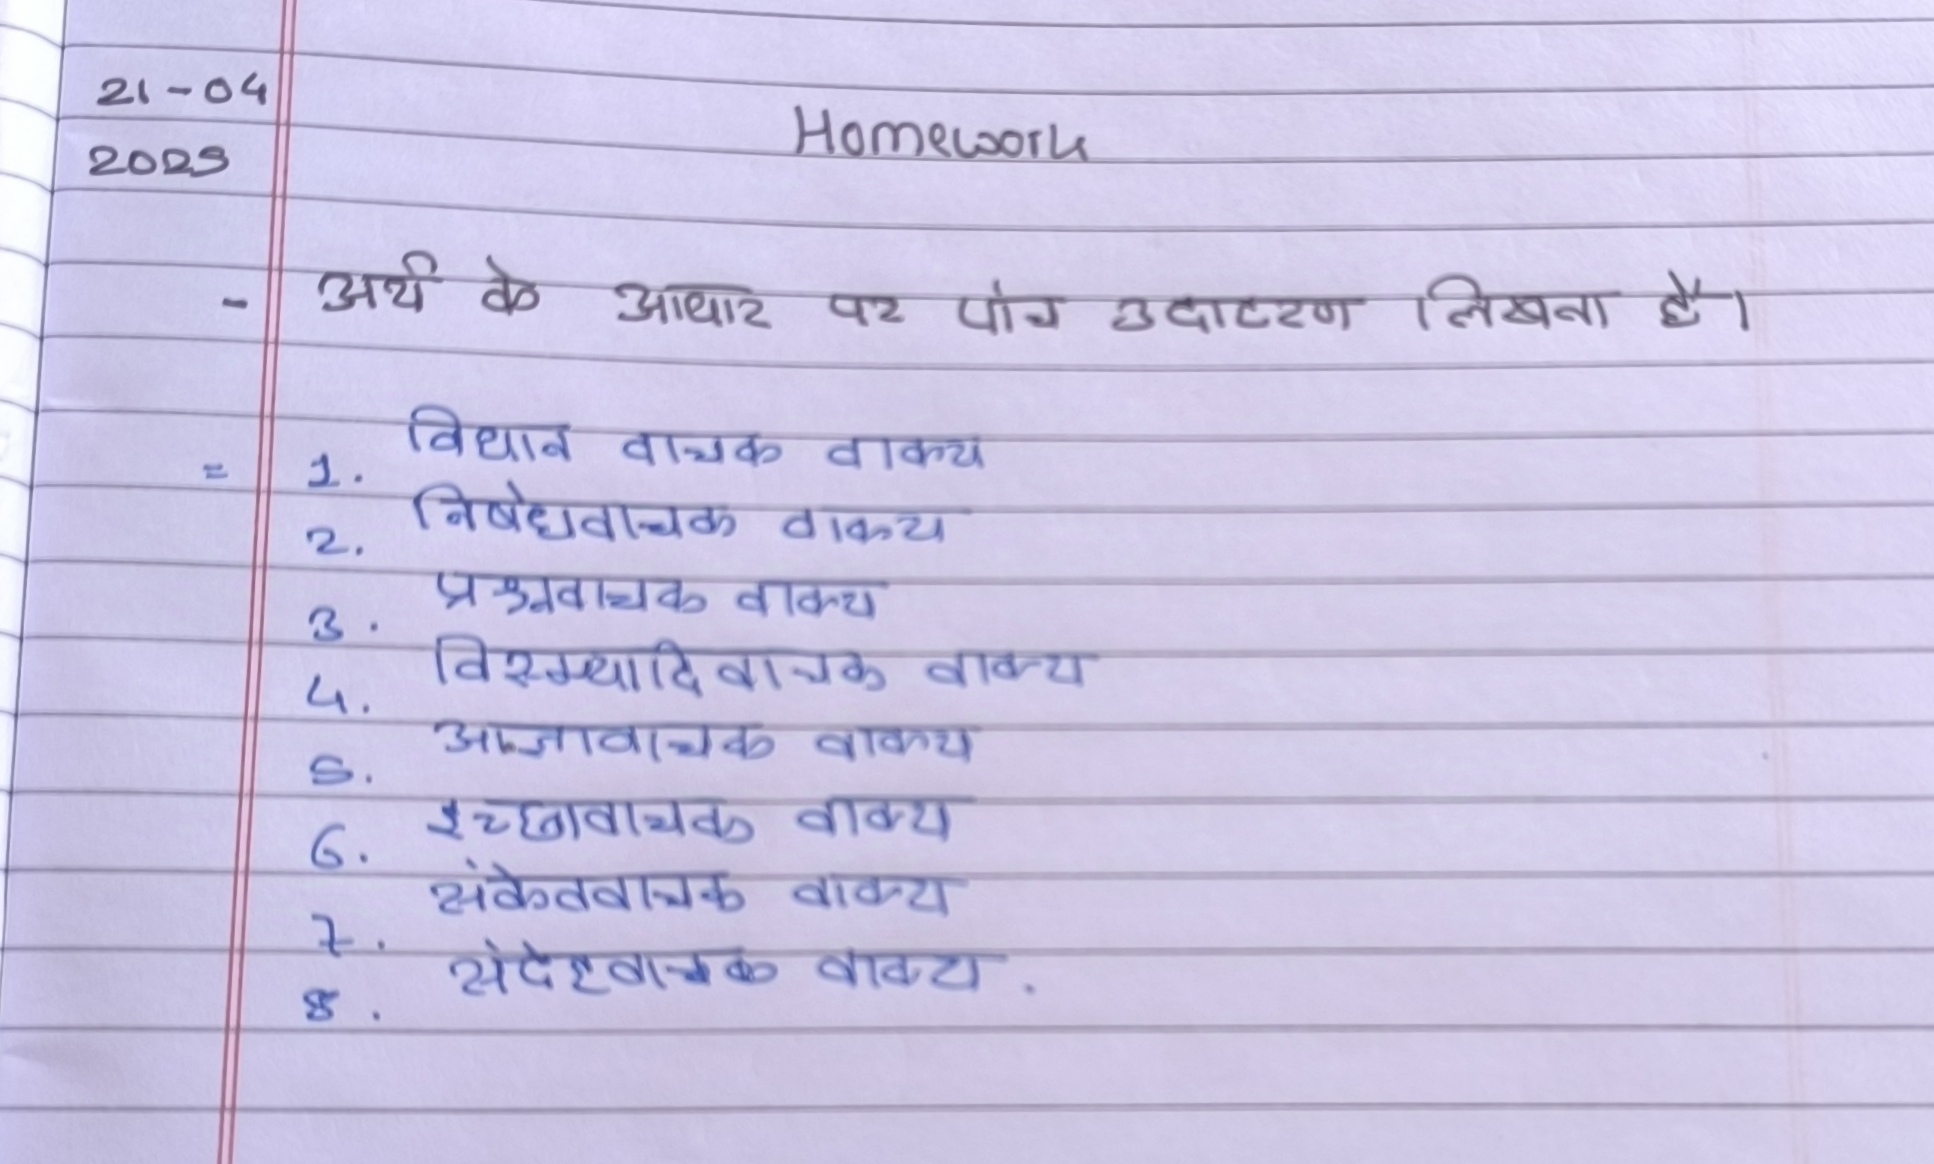 21-04
2025
Homework
- अर्थ के आधार पर पांच उदाहरण लिखना है।
= 1. विधान वाचक वाक्य
2. निषेधवाचक वाक्य
3. प्रश्नवाचक वाक्य
4. विस्म्यादिवाचक वाक्य
5. आज्ञावाचक वाक्य
6. इच्छावाचक वाक्य
7. संकेतवाचक वाक्य
8. संदेहवाचक वाक्य.